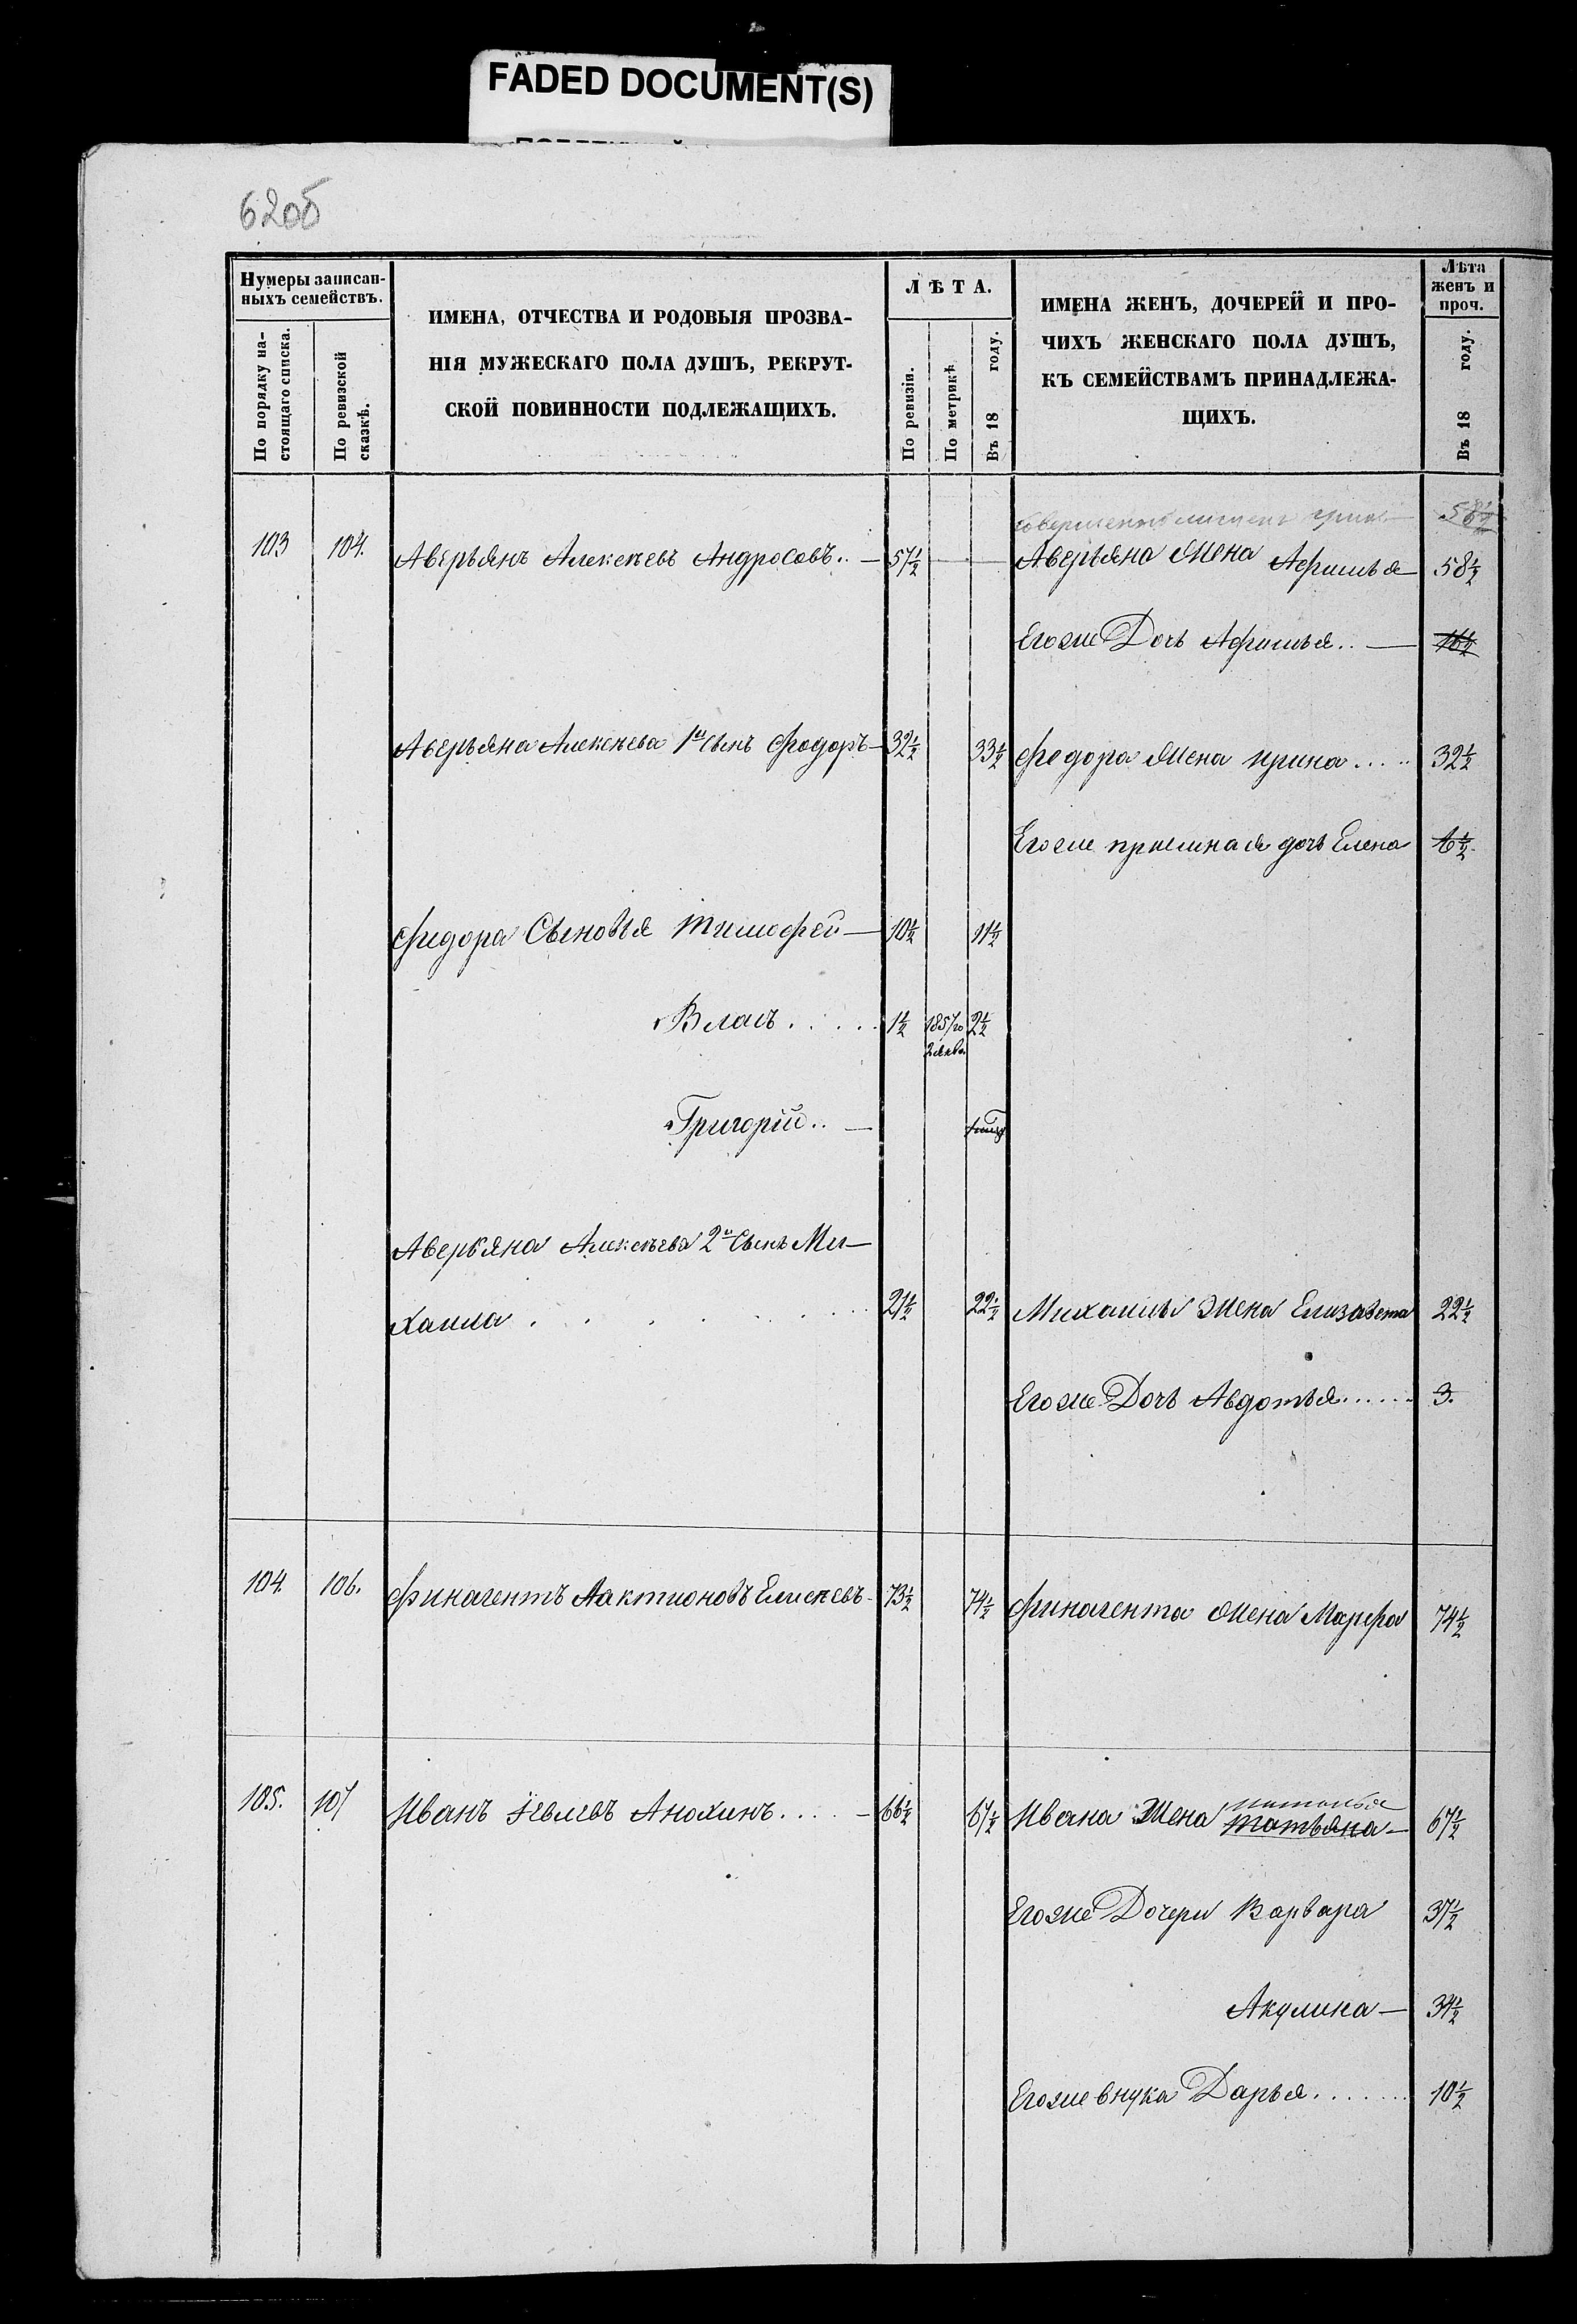 FADED DOCUMENT(S)
62об
Нумеры записан-
ныхъ семействъ.
По порядку на-
стоящаго списка.
По ревизской
сказкѣ.
ИМЕНА, ОТЧЕСТВА И РОДОВЫЯ ПРОЗВА-
НІЯ МУЖЕСКАГО ПОЛА ДУШЪ, РЕКРУТ-
СКОЙ ПОВИННОСТИ ПОДЛЕЖАЩИХЪ.
ЛѢТА.
По ревизіи.
По метрикѣ.
Въ 18 году.
ИМЕНА ЖЕНЪ, ДОЧЕРЕЙ И ПРО-
ЧИХЪ ЖЕНСКАГО ПОЛА ДУШЪ,
КЪ СЕМЕЙСТВАМЪ ПРИНАДЛЕЖА-
ЩИХЪ.
Лѣта
женъ и
проч.
Въ 18 году.
58½
103 104. Аверьянъ Алексѣевъ Андросовъ.. — 57½ Аверьяна Жена Афимья — 58½
Егоже Дочь Афимья.. — 16½
Аверьяна Алексѣева 1й сынъ Федоръ — 32½ 33½ Федора Жена Ирина.... 32½
Егоже приемная дочь Елена 6½
Федора Сыновья Тимофей — 10½ 11½
Власъ..... 1½ 1857го 2½
Григорій.. —
Аверьяна Алексѣева 2й Сынъ Ми-
хаила........ 21½ 22½ Михаилы Жена Елизавета 22½
Егоже Дочь Авдотья...... 3.
104. 106. Финагентъ Лактионовъ Елисѣевъ 73½ 74½ Финагента Жена Марфа 74½
Наталья
105. 107 Иванъ Iевлевъ Анохинъ.... — 66½ 67½ Ивана Жена Татьяна — 67½
Егоже Дочери Варвара 37½
Акулина — 34½
Егоже внука Дарья....... 10½